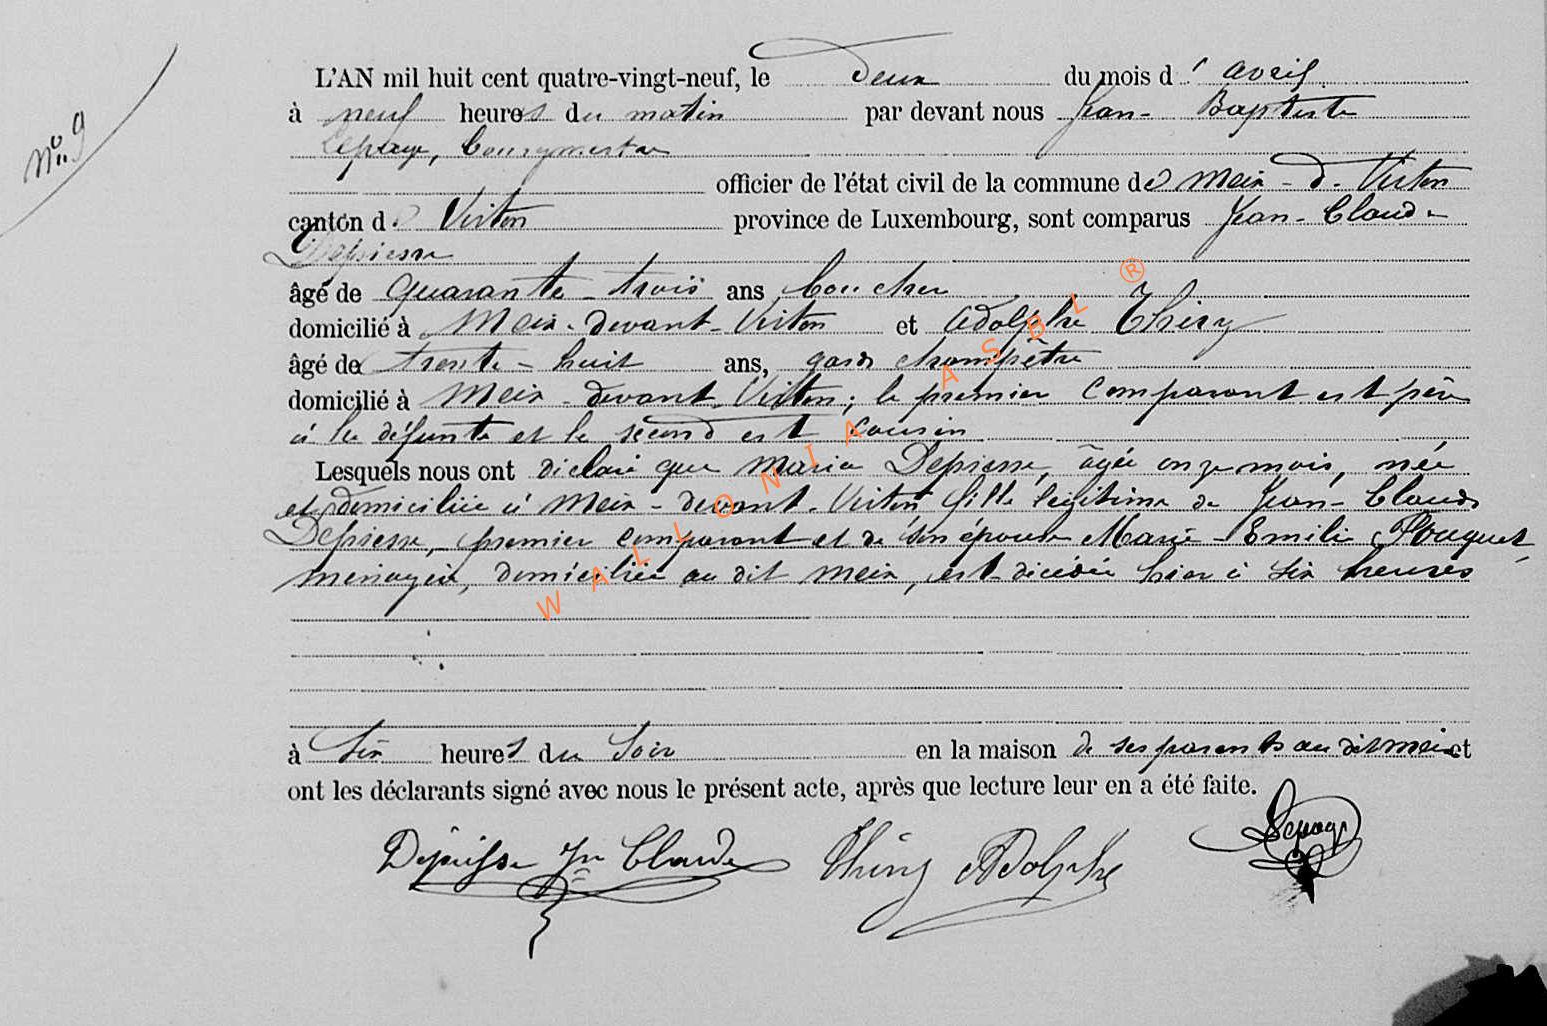 N° 9
L'AN mil huit cent quatre-vingt-neuf, le deux du mois d' avril
à neuf heures du matin par devant nous Jean-Baptiste
Lepage, bourgmestre
officier de l'état civil de la commune de Meix-d-Virton
canton de Virton province de Luxembourg, sont comparus Jean-Claude
Depiesse
âgé de quarante-trois ans boucher
domicilié à Meix-devant-Virton et Adolphe Thiry
âgé de trente-huit ans, garde champêtre
domicilié à Meix-devant-Virton; le premier comparant est père
à la défunte et le second est cousin
Lesquels nous ont déclaré que Maria Depiesse, âgée onze mois, née
et domiciliée à Meix-devant-Virton fille légitime de Jean-Claude
Depiesse, premier comparant et de son épouse Marie-Emilie Pouquet
ménagère, domiciliée au dit Meix, est décédée hier à six heures
à six heures du soir en la maison de ses parents au dit Meix et
ont les déclarants signé avec nous le présent acte, après que lecture leur en a été faite.
Depiesse Jn Claude Thiry Adolphe Lepage
WALLONIA ASBL ®